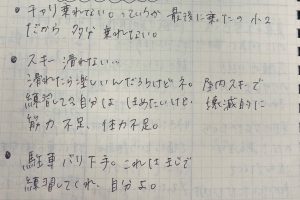 ・チャリ乗れない。っていうか 最後に乗たの小2
だから 多分 乗れない。
・スキー 滑れない…
滑れたら楽しいんだろうけどネ。屋内スキーで
練習してる自分は ほめたいけど、壊滅的に
筋力不足、体力不足。
・駐車 バリ下手。これはまじで
練習してくれ、自分よ。